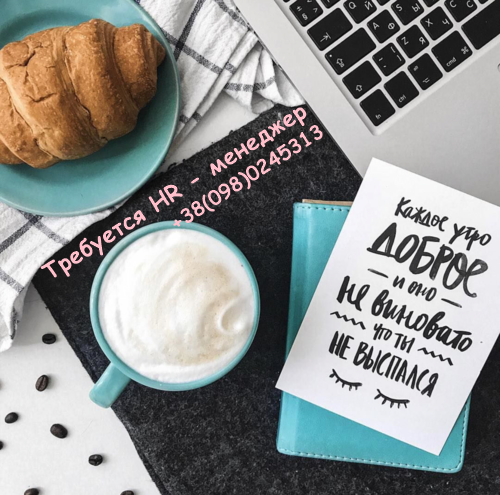 Требуется HR - менеджер
+38(098)0245313
Каждое утро
ДОБРОЕ
и оно
НЕ ВИНОВАТО
что ты
НЕ ВЫСПАЛСЯ